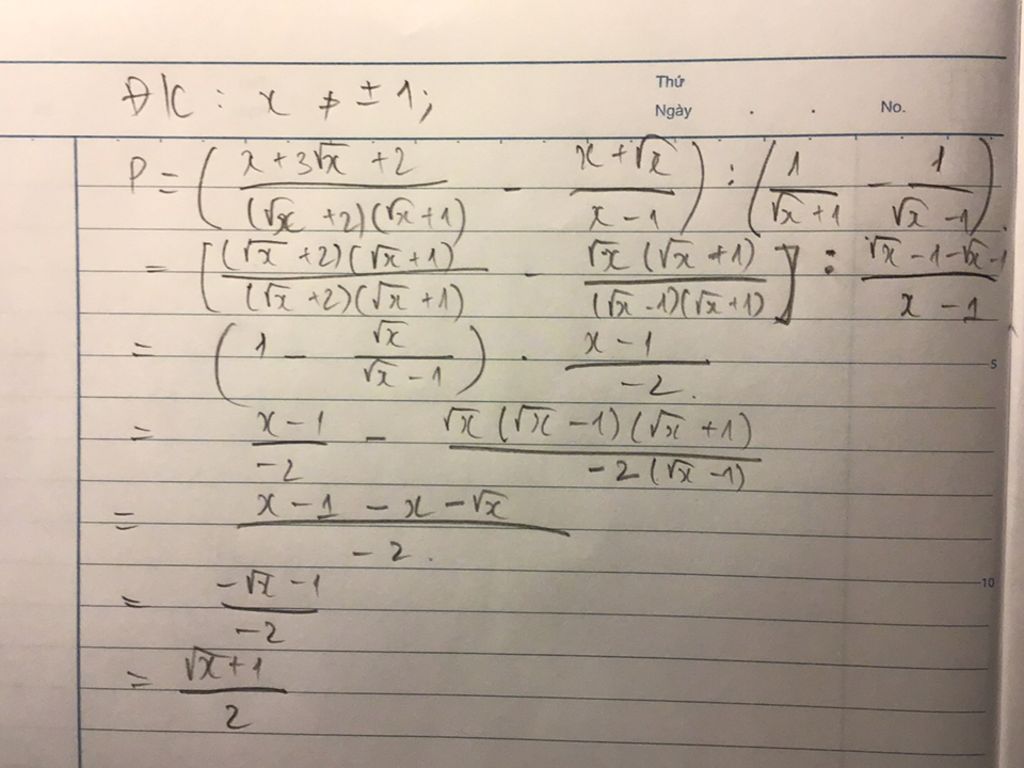 ĐK : x ≠ ± 1;
Thứ
Ngày . . No.
P = ( (x + 3√x + 2)/((√x + 2)(√x + 1)) - (x + √x)/(x - 1) ) : ( 1/(√x + 1) - 1/(√x - 1) ).
= [ ((√x + 2)(√x + 1))/((√x + 2)(√x + 1)) - (√x (√x + 1))/((√x - 1)(√x + 1)) ] : (√x - 1 - √x - 1)/(x - 1)
= ( 1 - √x/(√x - 1) ) . (x - 1)/(-2).
5
= (x - 1)/(-2) - (√x (√x - 1)(√x + 1))/(-2(√x - 1))
= (x - 1 - x - √x)/(-2).
= (-√x - 1)/(-2)
10
= (√x + 1)/2